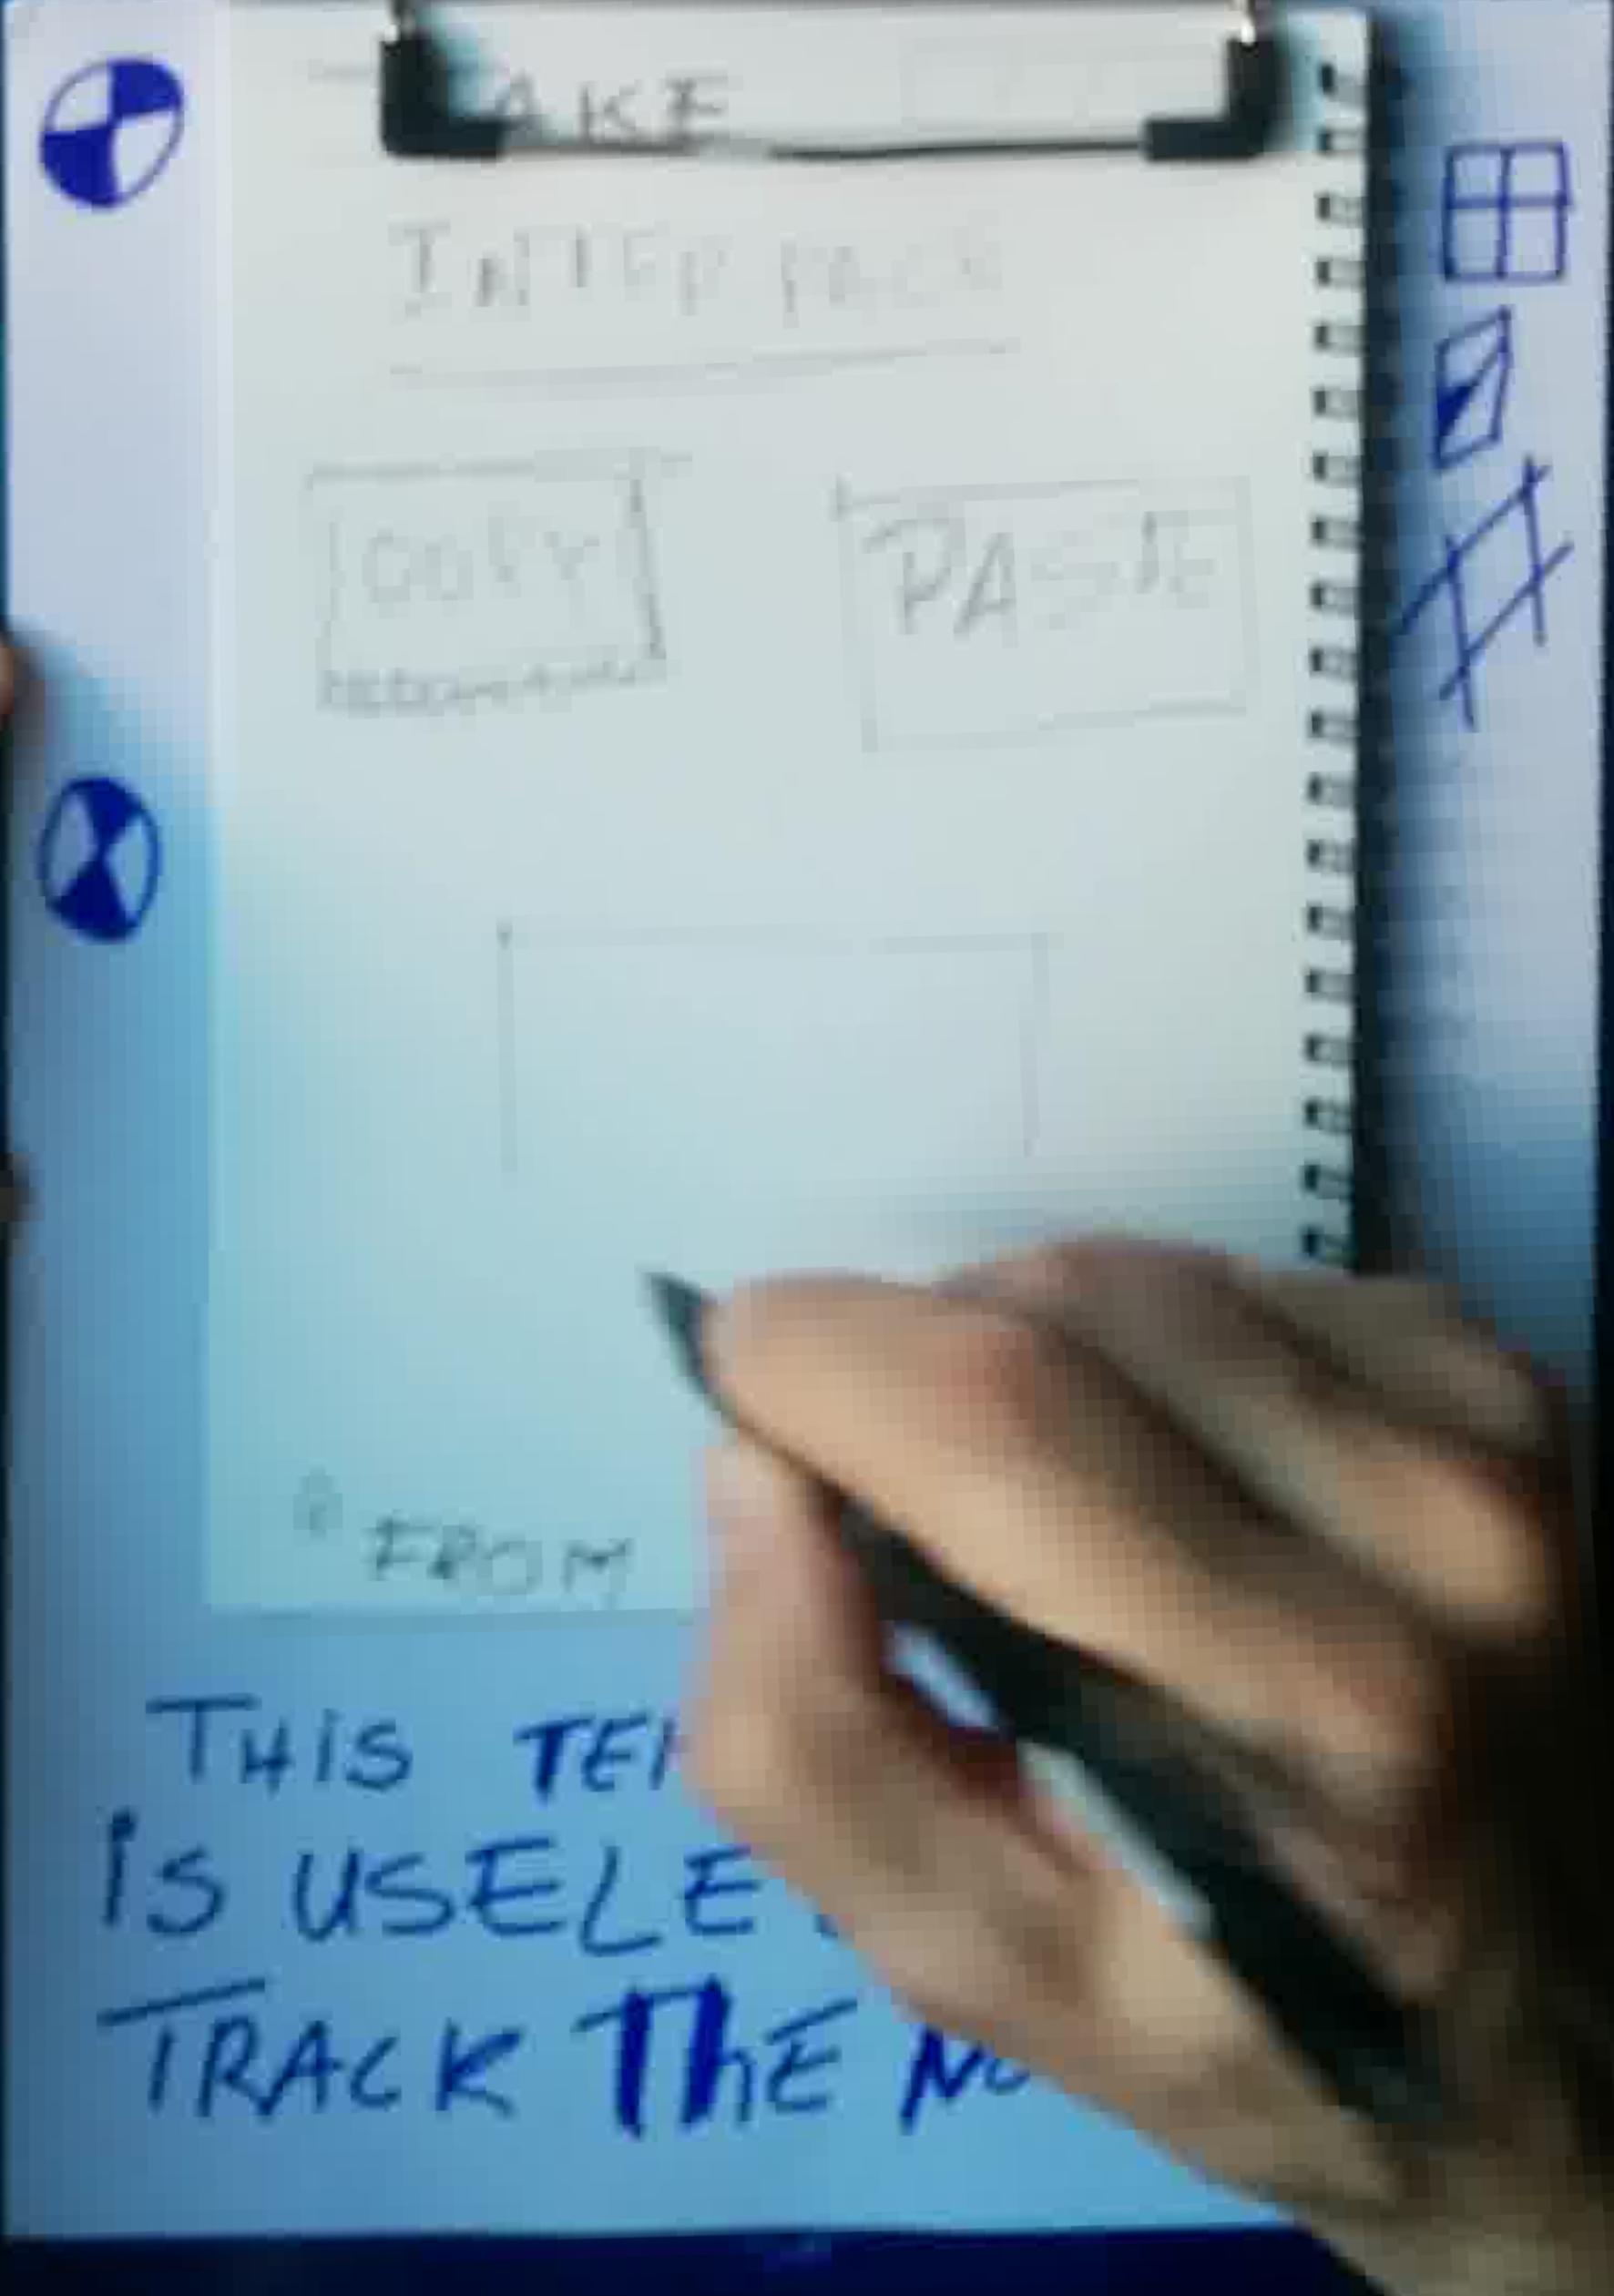 AKE
INTERFACE
COPY PASTE
FROM
THiS TE
iS USELE
TRACK ThE NO